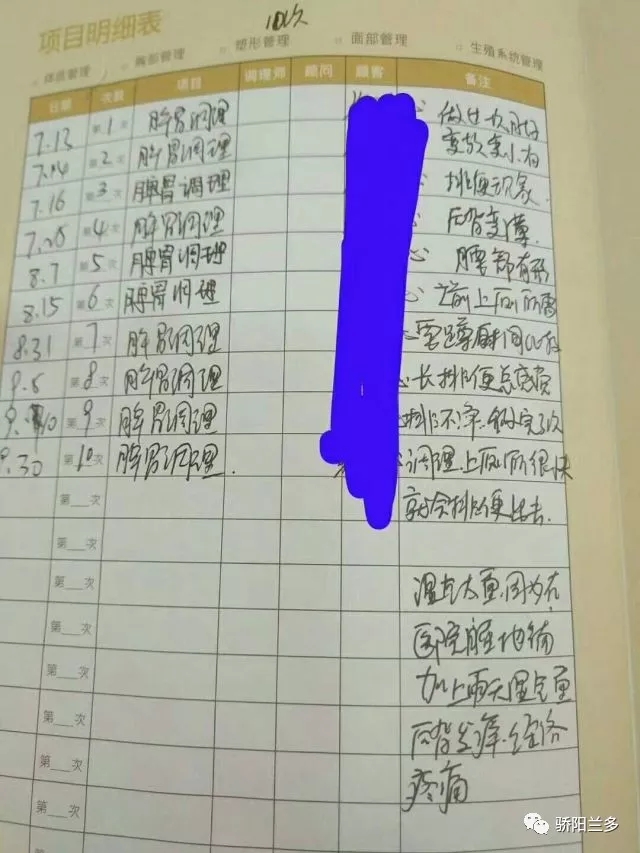 10次
项目明细表
○ 体质管理 ○ 胸部管理 ○ 塑形管理 ○ 面部管理 ○ 生殖系统管理
日期 次数 项目 调理师 顾问 顾客 备注
7.13 第1次 脾胃调理
7.14 第2次 脾胃调理 变软变小有
7.16 第3次 脾胃调理 排便现象
7.26 第4次 脾胃调理 后背变薄
8.7 第5次 脾胃调理 腰部有形
8.15 第6次 脾胃调理 之前上厕所需
8.31 第7次 脾胃调理 要蹲时间比较
9.5 第8次 脾胃调理 长排便总感觉
9.10 第9次 脾胃调理 排不净.做完了次
9.30 第10次 脾胃调理. 调理上厕所很快
第__次 就会排便出去.
第__次
第__次 湿气太重.因为在
第__次 医院腰地铺
第__次 加上雨天湿气重
第__次 后背发痒.经络
第__次 疼痛
第__次
骄阳兰多